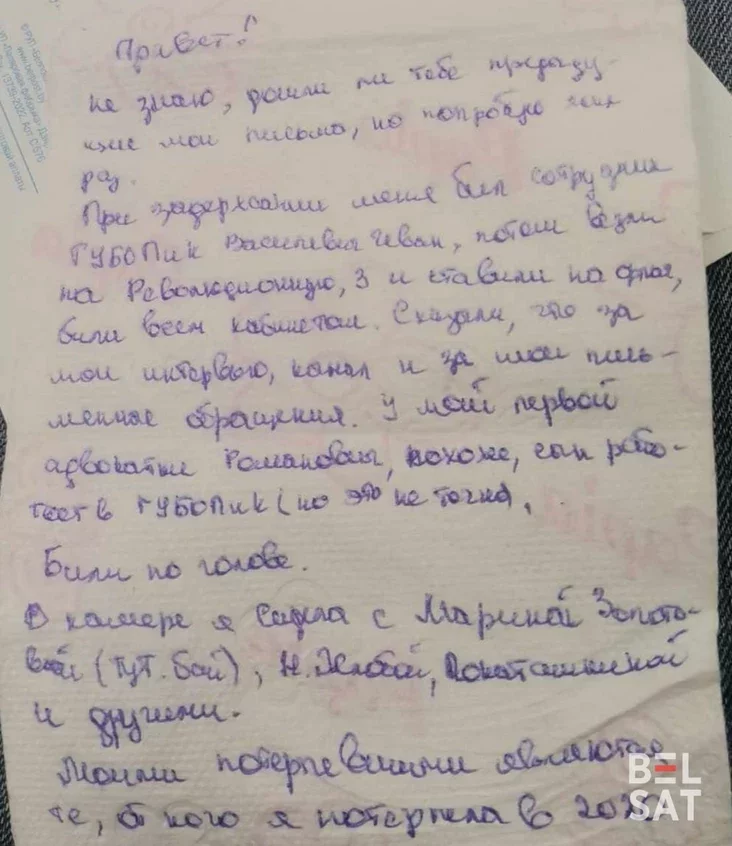 Привет!
не знаю, дошли ли тебе предыду-
щие мои письма, но попробую еще
раз.
При задержании меня бил сотрудник
ГУБОПиК Василевич Иван, потом везли
на Революционную, 3 и ставили на флаг,
били всем кабинетом. Сказали, что за
мои интервью, канал и за мои пись-
менные обращения. У моей первой
адвокатки Романовой, похоже, сын рабо-
тает в ГУБОПиК (но это не точно).
Били по голове.
В камере я сидела с Мариной Золото-
вой (тут.бай), Н. Лобой, Локоташкиной
и другими.
Моими потерпевшими являются
те, от кого я потерпела в 2020
BELSAT